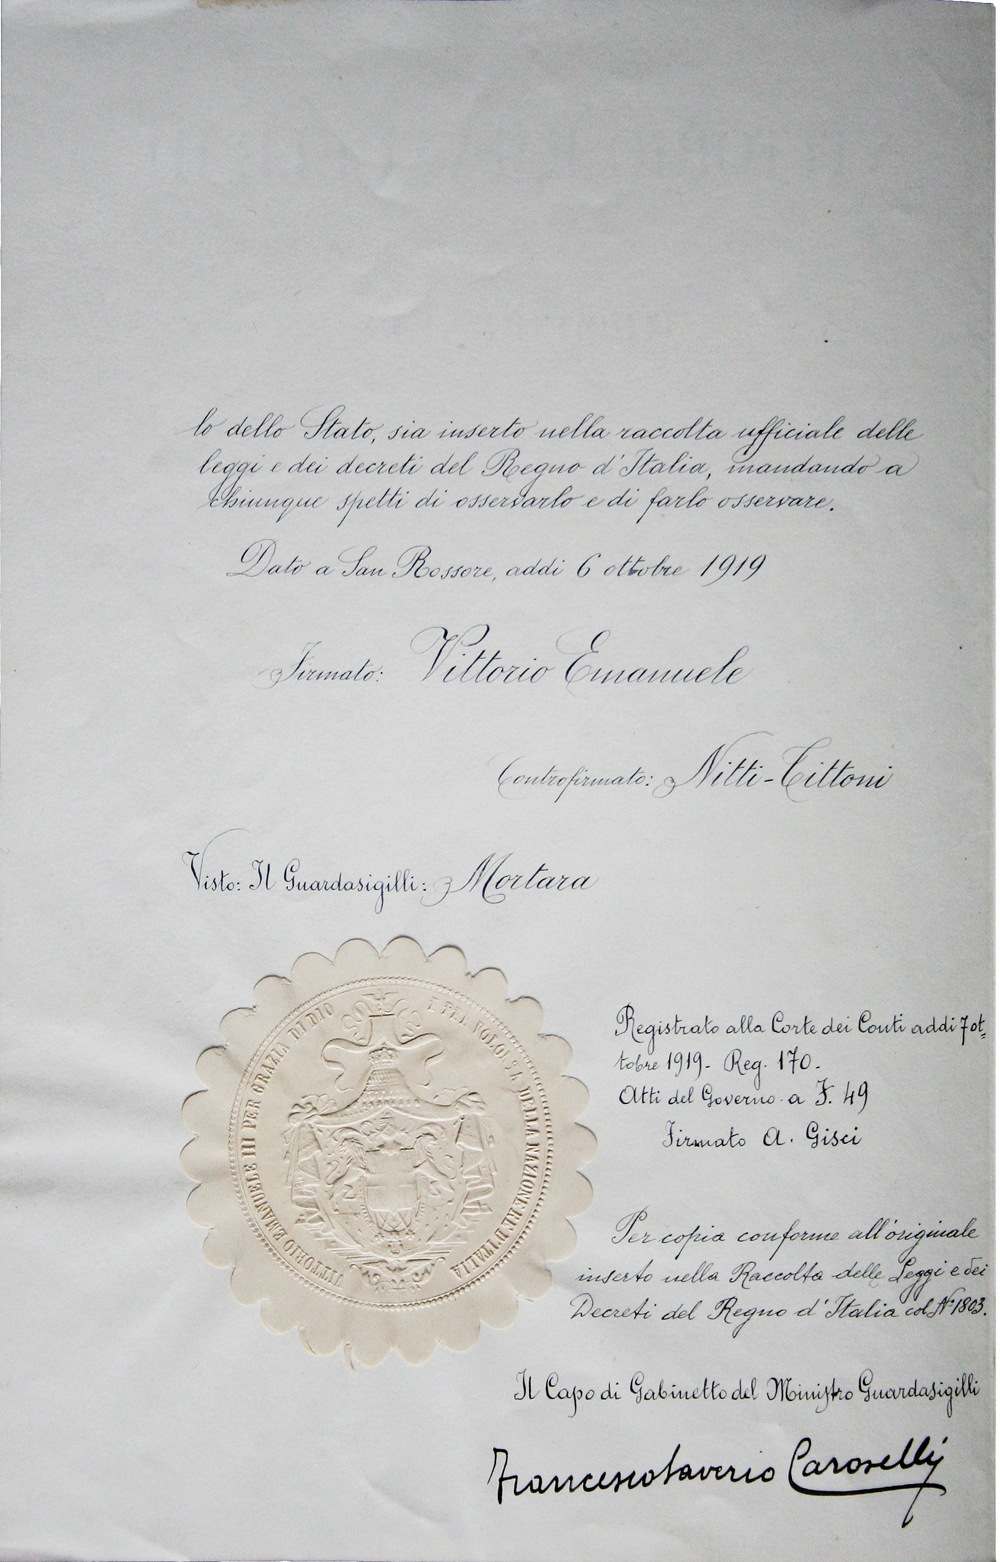 lo dello Stato, sia inserto nella raccolta ufficiale delle
leggi e dei decreti del Regno d'Italia, mandando a
chiunque spetti di osservarlo e di farlo osservare.
Dato a San Rossore, addi 6 ottobre 1919
Firmato: Vittorio Emanuele
Controfirmato: Nitti-Tittoni
Visto: Il Guardasigilli: Mortara
VITTORIO EMANUELE III PER GRAZIA DI DIO E PER VOLONTÀ DELLA NAZIONE RE D'ITALIA
Registrato alla Corte dei Conti addi 7 ot=
tobre 1919- Reg. 170-
Atti del Governo- a F. 49
Firmato A. Gisci
Per copia conforme all'originale
inserto nella Raccolta delle Leggi e dei
Decreti del Regno d'Italia col N° 1803.
Il Capo di Gabinetto del Ministro Guardasigilli
Francesco Saverio Caroselli